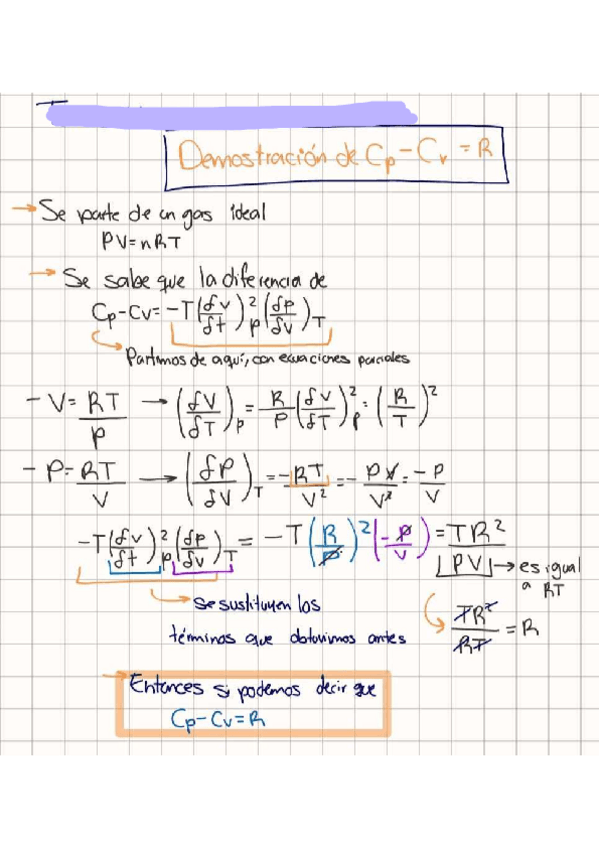 Demostración de Cp - Cv = R
→ Se parte de un gas ideal
PV = nRT
→ Se sabe que la diferencia de
Cp - Cv = -T (δv/δt)²p (δp/δv)T
Partimos de aquí, con ecuaciones parciales
- V = RT/P → (δV/δT)p = R/P (δv/δT)²p = (R/T)²
- P = RT/V → (δP/δV)T = -RT/V² = -PV/V² = -P/V
-T (δv/δt)²p (δp/δv)T = -T (R/P)² (-P/V) = TR²/PV → es igual
a RT
se sustituyen los
términos que obtuvimos antes
TR²/RT = R
Entonces si podemos decir que
Cp - Cv = R